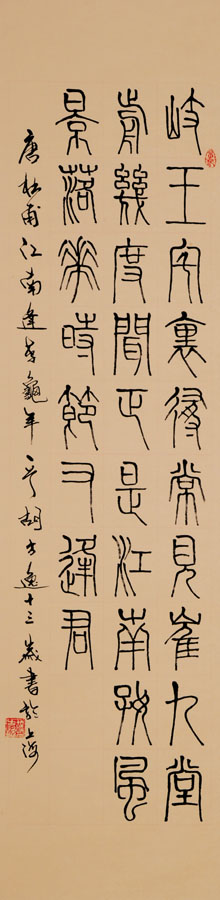 岐王宅裏尋常見崔九堂
前幾度聞正是江南好風
景落華時節又逢君
唐杜甫江南逢李龜年 胡 逸十三歲書於上海